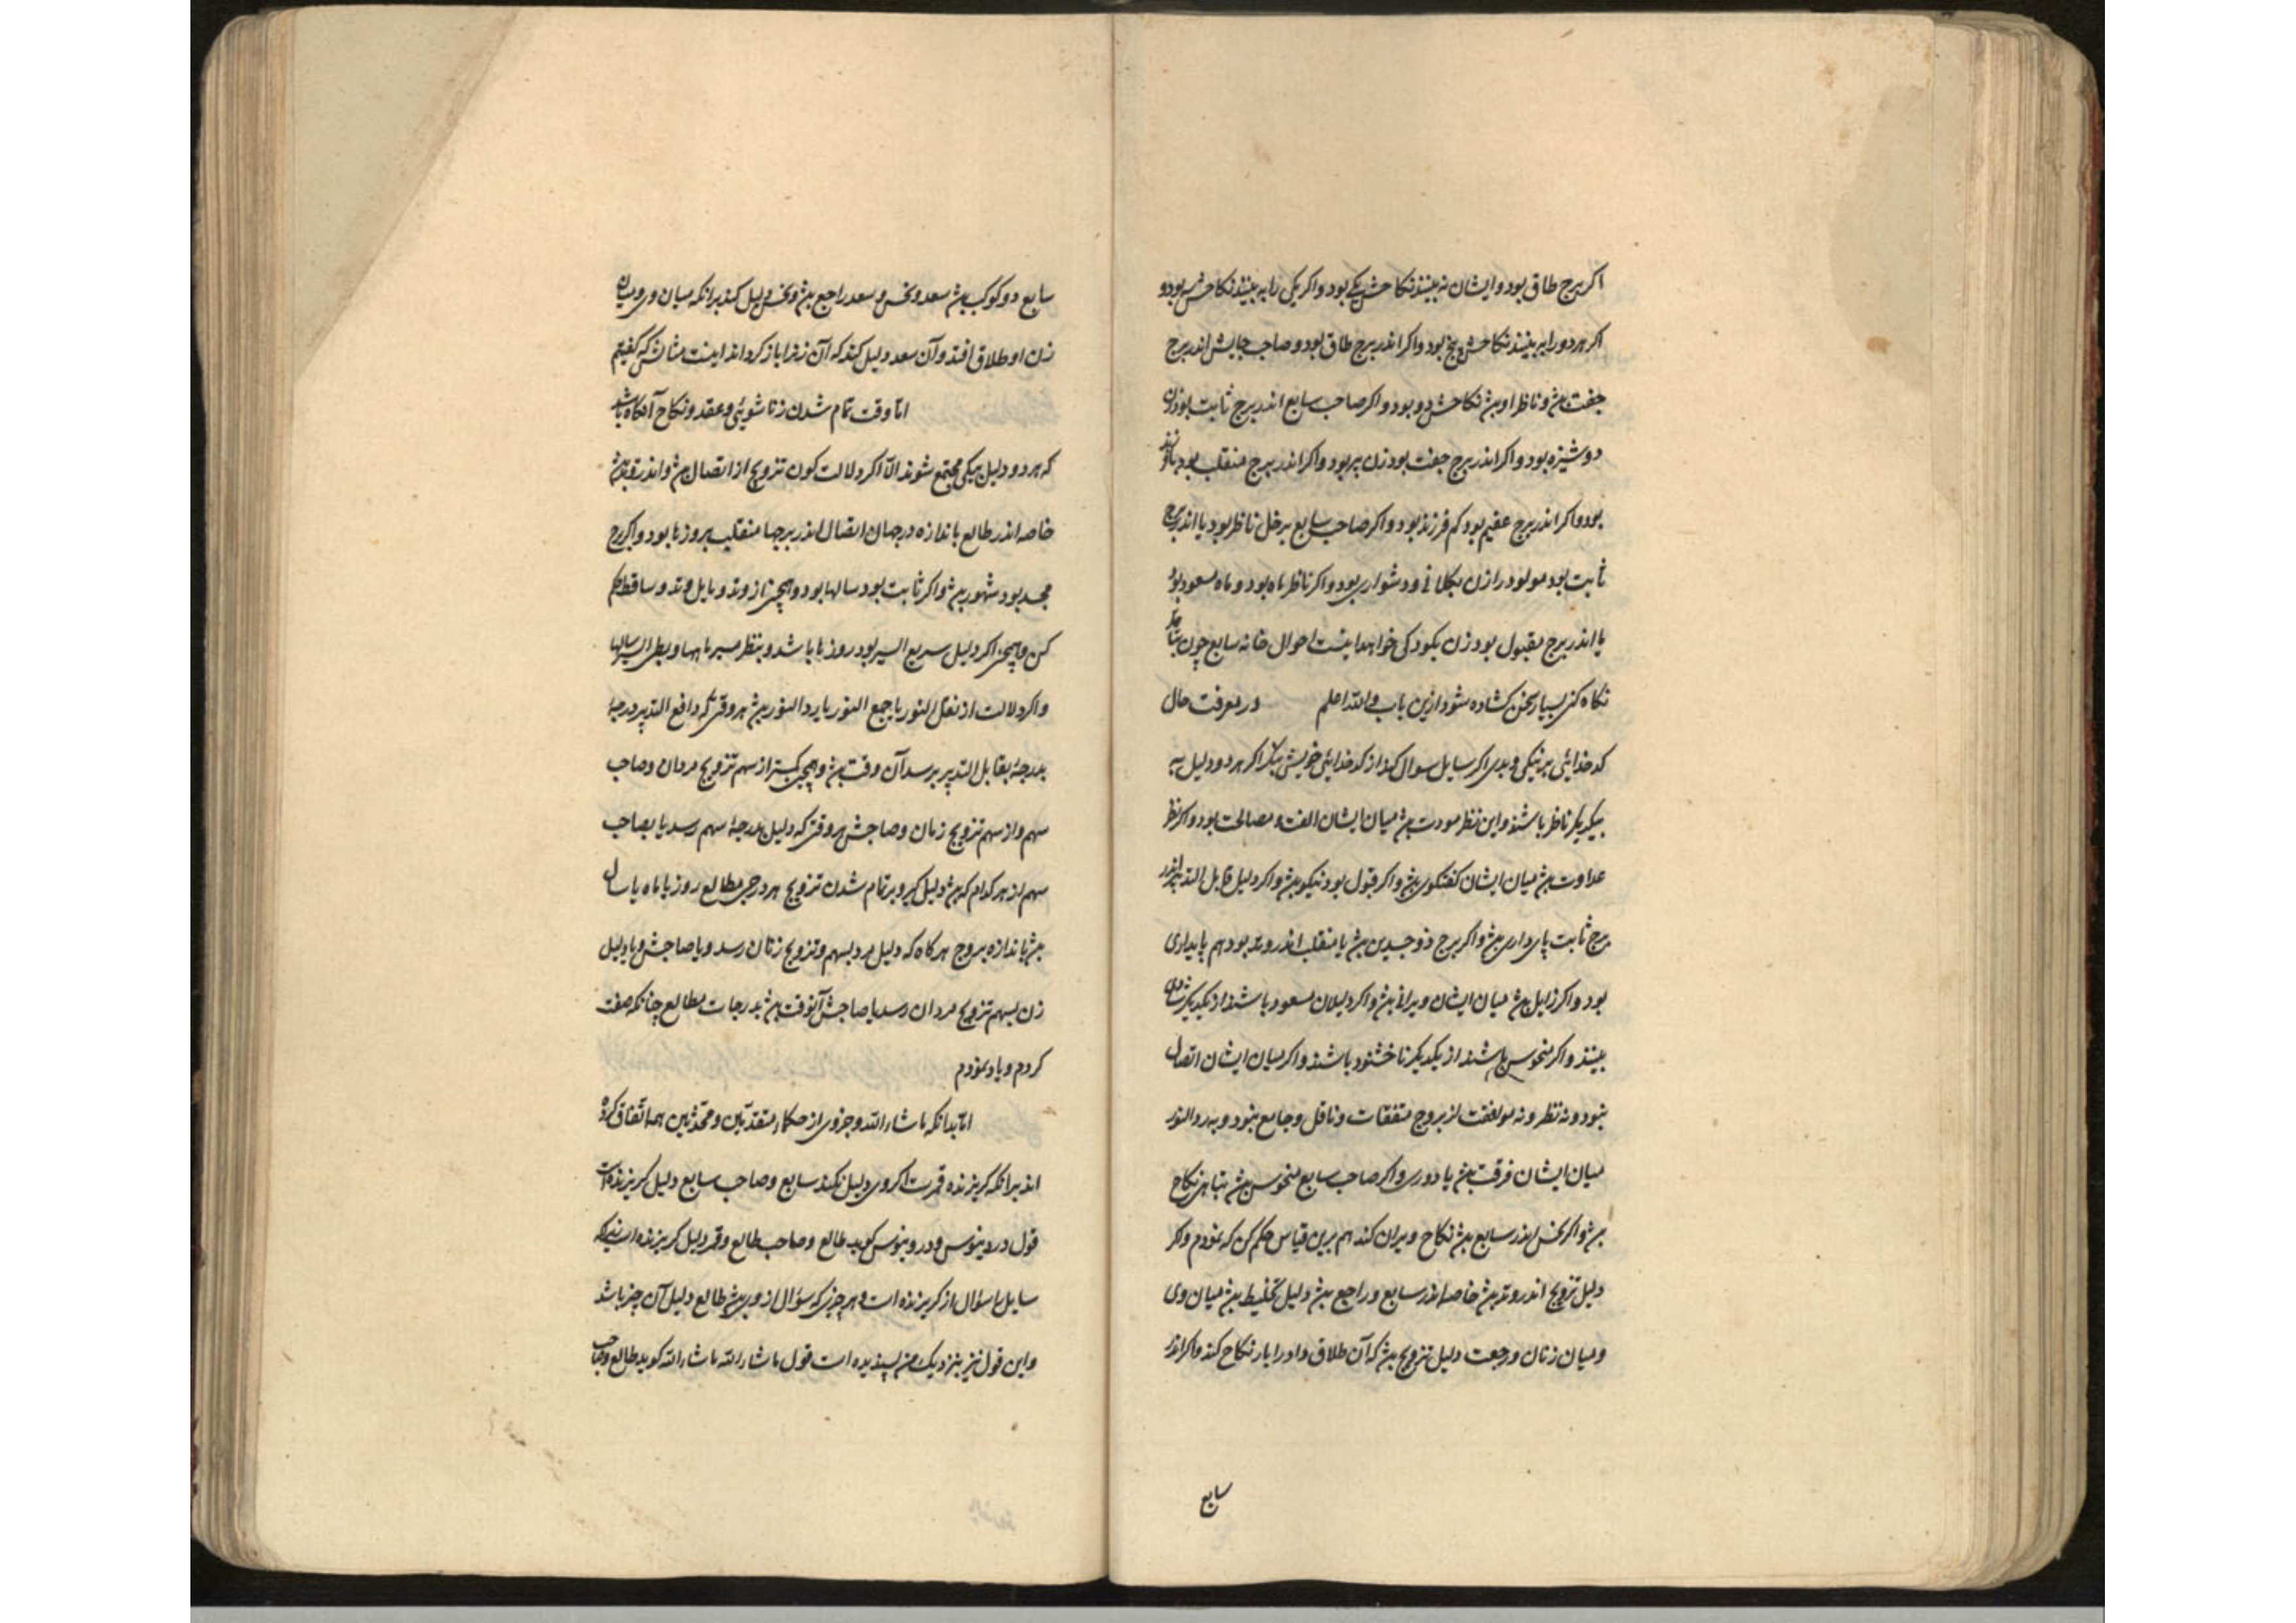 اکر برج طاق بود و ایشان نه بینند نکاحش یکی بود و اکر یکی را به بینند نکاحش سه بود و
اکر هر دو را به بینند نکاحش پنج بود و اکر اندر برج طاق بود و صاحب جایش اندر برج
جفت بیش و ناظر او بیش نکاحش دو بود و اکر صاحب سابع اندر برج ثابت بود زن
دوشیزه بود و اکر اندر برج جفت بود زن پیر بود و اکر اندر برج منقلب بود
بود و اکر اندر برج عقیم بود کم فرزند بود و اکر صاحب سابع بزحل ناظر بود یا اندر برج
ثابت بود مولود را زن بکلانی و دشواری بود و اکر ناظر ماه بود و ماه مسعود بود
یا اندر برج مقبول بود زن بکودکی خواهد اینست احوال خانه سابع چون
نکاه کنی بسیار سخن کشاده شود ازین باب والله اعلم در معرفت حال
کدخدایئی بر نیکی و بدی اکر سایل سوال کند از کدخدایئی خویش بنکر اکر هر دو دلیل به
بیکدیکر ناظر باشند و این نظر مودت بیش میان ایشان الفت و مصالحت بود و اکر نظر
عداوت بیش میان ایشان کفتکوی بیش و اکر قبول بود نیکو بیش و اکر دلیل قابل التدبیر اندر
برج ثابت پای داری بیش و اکر برج ذو جسدین بیش یا منقلب اندر وتد بود هم پایداری
بود و اکر زایل بیش میان ایشان ویرانی بیش و اکر دلیلان مسعود باشند از یکدیکر
بینند و اکر منحوس باشند از یکدیکر ناخشنود باشند و اکر میان ایشان اتصال
نبود و نه نظر و نه موافقت از بروج متفقات و ناقل و جامع نبود و به رد النور
میان ایشان فرقت بیش یا دوری و اکر صاحب سابع منحوس بیش بتباهی نکاح
بیش و اکر نحس اندر سابع بیش نکاح ویران کند هم برین قیاس حکم کن که نمودم و کر
دلیل تزویج اندر وتد بیش خاصه اندر سابع و راجع بیش دلیل تخلیط بیش میان وی
و میان زنان و رجعت دلیل تزویج بیش که آن طلاق داد را باز نکاح کند و اکر اندر
سابع
سابع دو کوکب بیش سعد و نحس و سعد راجع بیش و نحس دلیل کند برانکه میان وی و میان
زن او طلاق افتد و آن سعد دلیل کند که آن زن را باز کرداند اینست مثالش که کفتیم
اما وقت تمام شدن زناشوئی و عقد و نکاح آنکاه باشد
که هر دو دلیل بیکی مجتمع شوند الا اکر دلالت کون تزویج از اتصال بیش و اندر وتد بیش
خاصه اندر طالع باندازه درجهان اتصال اندر برجها منقلب بروزها بود و اکر برج
مجسد بود شهور بیش و اکر ثابت بود سالها بود و همچنین از وتد و مایل وتد و ساقط حکم
کن و همچنین اکر دلیل سریع السیر بود روزها باشد و بنظر سیر ماهها و بطی السیر سالها
و اکر دلالت از نقل النور یا جمع النور یا رد النور بیش هر وقتی که دافع التدبیر درجه
بدرجه بقابل التدبیر برسد آن وقت بیش و همچنین بنکر از سهم تزویج مردان و صاحب
سهم و از سهم تزویج زنان و صاحبش هر وقتی که دلیل بدرجه سهم رسد یا بصاحب
سهم از هر کدام که بیش دلیل کیر و بر تمام شدن تزویج هر درجی مطالع روز یا ماه یا سال
بیش باندازه بروج هرکاه که دلیل مرد بسهم تزویج زنان رسد و یا صاحبش و یا دلیل
زن بسهم تزویج مردان رسد یا صاحبش آنوقت بیش بدرجات مطالع چنانکه صفت
کردم و یاد نمودم
اما بدانکه ما شاء الله و جزوی از حکماء متقدمین و محدثین همه اتفاق کرده
اند برانکه کریزنده قمر است اکر وی دلیل نکند سابع و صاحب سابع دلیل کریزنده است
قول درونیوس و درونیوس کوید طالع و صاحب طالع و قمر دلیل کریزنده است زیراکه
سایل را سؤال از کریزنده است و هر چیزی که سؤال از وی بیش طالع دلیل آن چیز باشد
و این قول نیز بنزدیک من پسندیده است قول ما شاء الله ما شاء الله کوید طالع و صاحب